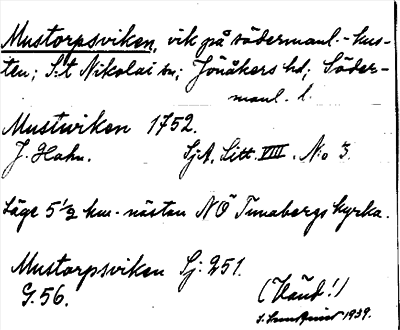 Mustorpsviken, vik på södermanl.-kus-
ten; S:t Nikolai sn; Jönåkers hd; Söder-
manl. l.
Mustwiken 1752.
J. Hahn. SjA. Litt. VIII. N:o 3.
Läge 5 1/2 km. nästan NÖ Tunabergs kyrka.
Mustorpsviken Sj: 251.
G. 56. (Vänd!)
1939.